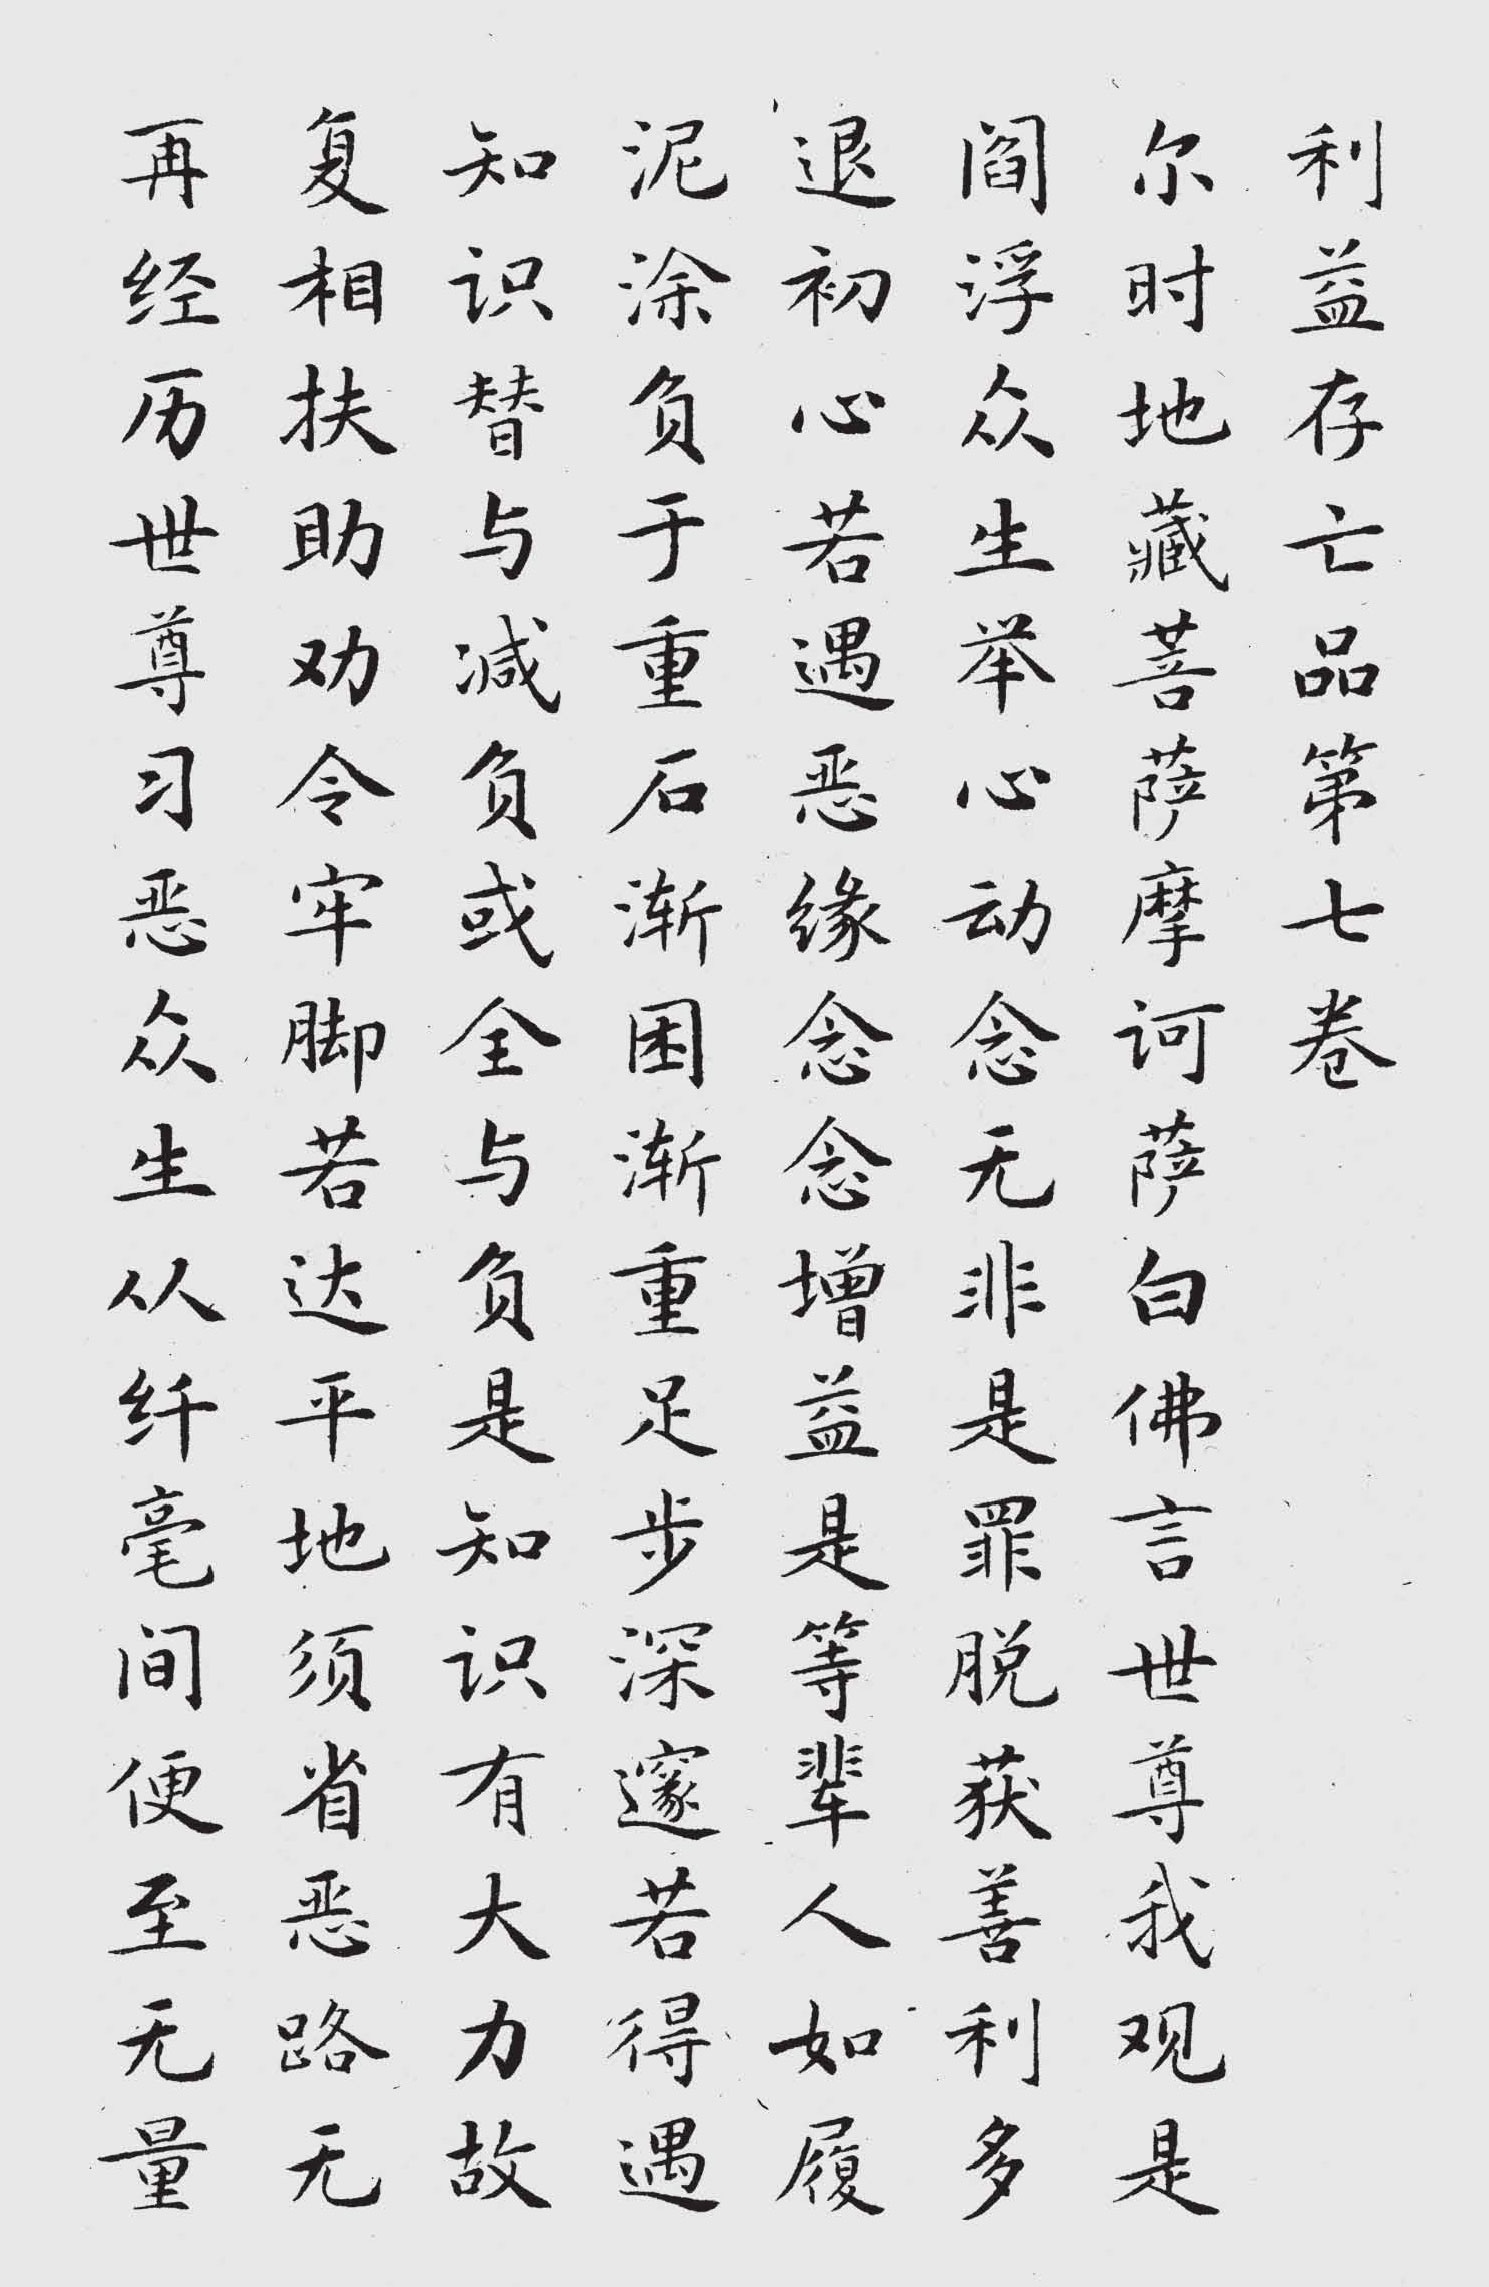 利益存亡品第七卷
尔时地藏菩萨摩诃萨白佛言世尊我观是
阎浮众生举心动念无非是罪脱获善利多
退初心若遇恶缘念念增益是等辈人如履
泥涂负于重石渐困渐重足步深邃若得遇
知识替与减负或全与负是知识有大力故
复相扶助劝令牢脚若达平地须省恶路无
再经历世尊习恶众生从纤毫间便至无量